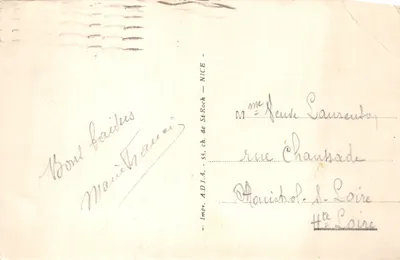 Bons baisers
Marie France
Impr. A.D.I.A. - 55, ch. de St-Roch — NICE -
Mme Veuve Laurentay
rue Chaussade
Monistrol-s-Loire
Hte Loire